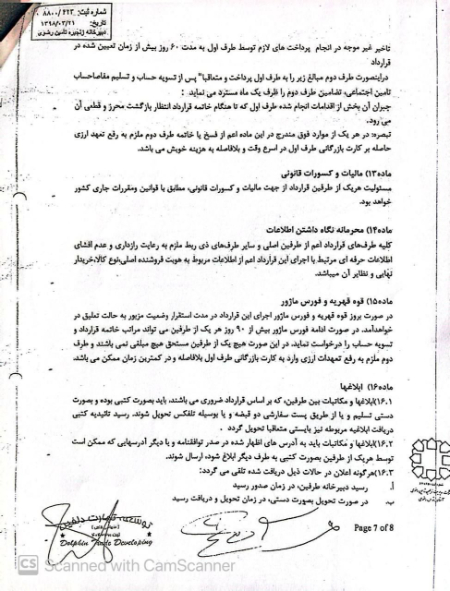 شماره ثبت: ۸۸۰۰/۴۲۳
تاریخ: ۱۳۹۸/۰۳/۲۱
دبیرخانه زنجیره تأمین رضوی
تاخیر غیر موجه در انجام پرداخت های لازم توسط طرف اول به مدت ۶۰ روز بیش از زمان تعیین شده در
قرارداد
دراینصورت طرف دوم مبالغ زیر را به طرف اول پرداخت و متعاقبا" پس از تسویه حساب و تسلیم مفاصاحساب
تامین اجتماعی، تضامین طرف دوم را ظرف یک ماه مسترد می نماید :
جبران آن بخش از اقدامات انجام شده طرف اول که تا هنگام خاتمه قرارداد انتظار بازگشت محرز و قطعی آن
می رود.
تبصره: در هر یک از موارد فوق مندرج در این ماده اعم از فسخ یا خاتمه طرف دوم ملزم به رفع تعهد ارزی
حاصله بر کارت بازرگانی طرف اول در اسرع وقت و بلافاصله به هزینه خویش می باشد.
ماده۱۳) مالیات و کسورات قانونی
مسئولیت هریک از طرفین قرارداد از جهت مالیات و کسورات قانونی، مطابق با قوانین ومقررات جاری کشور
خواهد بود.
ماده۱۴) محرمانه نگاه داشتن اطلاعات
کلیه طرف‌های قرارداد اعم از طرفین اصلی و سایر طرف‌های ذی ربط ملزم به رعایت رازداری و عدم افشای
اطلاعات حرفه ای مرتبط با اجرای این قرارداد اعم از اطلاعات مربوط به هویت فروشنده اصلی،نوع کالا،خریدار
نهایی و نظایر آن میباشد.
ماده۱۵) قوه قهریه و فورس ماژور
در صورت بروز قوه قهریه و فورس ماژور اجرای این قرارداد در مدت استقرار وضعیت مزبور به حالت تعلیق در
خواهدآمد. در صورت ادامه فورس ماژور بیش از ۹۰ روز هر یک از طرفین می تواند مراتب خاتمه قرارداد و
تسویه حساب را درخواست نماید، در این صورت هیچ یک از طرفین مستحق هیچ مبلغی نمی باشند و طرف
دوم ملزم به رفع تعهدات ارزی وارد به کارت بازرگانی طرف اول بلافاصله و در کمترین زمان ممکن می باشد.
ماده۱۶) ابلاغها
۱۶.۱)ابلاغها و مکاتبات بین طرفین، که بر اساس قرارداد ضروری می باشند، باید بصورت کتبی بوده و بصورت
دستی تسلیم و یا از طریق پست سفارشی دو قبضه و یا بوسیله تلفکس تحویل شوند. رسید تائیدیه کتبی
دریافت ابلاغیه مربوطه نیز بایستی متعاقبا تحویل گردد .
۱۶.۲)ابلاغها و مکاتبات باید به آدرس های اظهار شده در صدر توافقنامه و یا دیگر آدرسهایی که ممکن است
توسط هریک از طرفین بصورت کتبی به طرف دیگر ابلاغ شوده، ارسال شوند.
۱۶.۳)هرگونه اعلان در حالات ذیل دریافت شده تلقی می گردد:
أ. رسید دبیرخانه طرفین، در زمان صدور رسید
ب. در صورت تحویل بصورت دستی، در زمان تحویل و دریافت رسید
Page 7 of 8
توسعه تجارت دلفین
Dolphin Trade Developing
CS Scanned with CamScanner